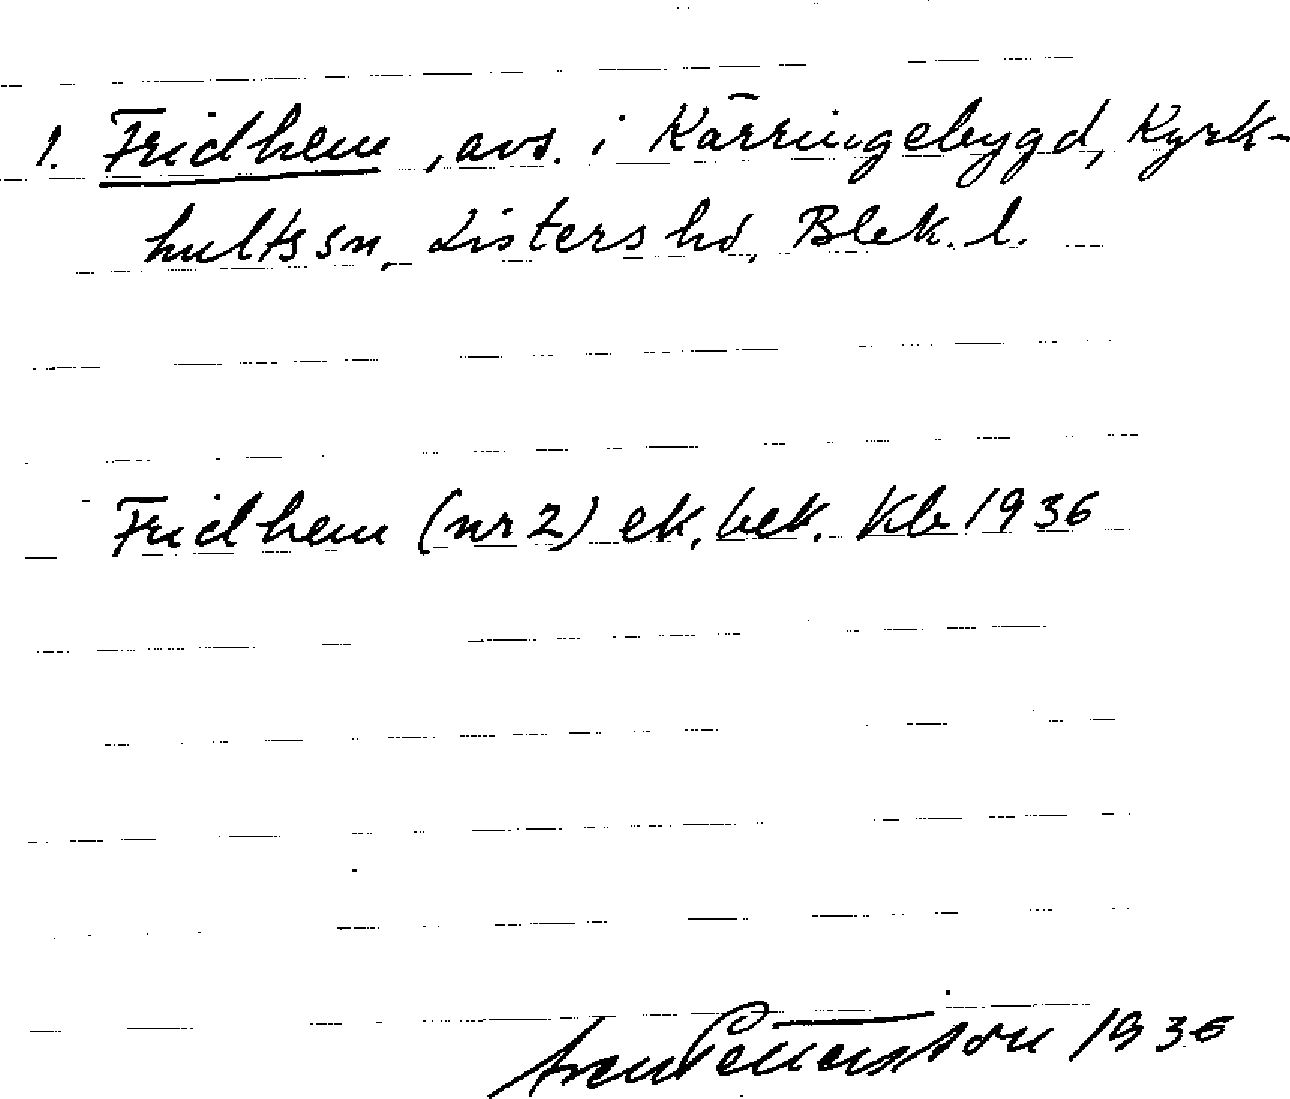 1. Fridhem, avs. i Kärringebygd, Kyrk-
hults sn, Listers hd, Blek. l.
Fridhem (nr 2) ek, bek. Kb 1936
Pettersson 1936